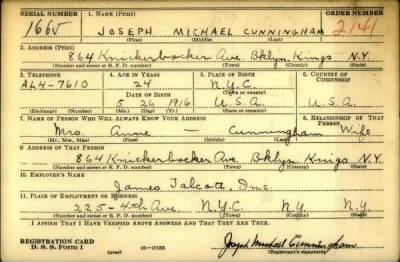 SERIAL NUMBER 1. NAME (Print) ORDER NUMBER
1665 JOSEPH MICHAEL CUNNINGHAM 2141
(First) (Middle) (Last)
2. ADDRESS (Print)
864 Knickerbocker Ave. Bklyn. Kings N.Y.
(Number and street or R. F. D. number) (Town) (County) (State)
3. TELEPHONE 4. AGE IN YEARS 5. PLACE OF BIRTH 6. COUNTRY OF CITIZENSHIP
AL4-7610 24 N.Y.C.
DATE OF BIRTH (Town or county)
5 26 1916 U.S.A. U.S.A.
(Exchange) (Number) (Mo.) (Day) (Yr.) (State or country)
7. NAME OF PERSON WHO WILL ALWAYS KNOW YOUR ADDRESS 8. RELATIONSHIP OF THAT PERSON
Mrs. Anne — Cunningham Wife
(Mr., Mrs., Miss) (First) (Middle) (Last)
9. ADDRESS OF THAT PERSON
864 Knickerbocker Ave. Bklyn. Kings N.Y.
(Number and street or R. F. D. number) (Town) (County) (State)
10. EMPLOYER'S NAME
James Talcott, Inc.
11. PLACE OF EMPLOYMENT OR BUSINESS
225-4th Ave. N.Y.C. N.Y. N.Y.
(Number and street or R. F. D. number) (Town) (County) (State)
I AFFIRM THAT I HAVE VERIFIED ABOVE ANSWERS AND THAT THEY ARE TRUE.
REGISTRATION CARD
D. S. S. Form 1 (over) 16-17105 Joseph Michael Cunningham
(Registrant's signature)